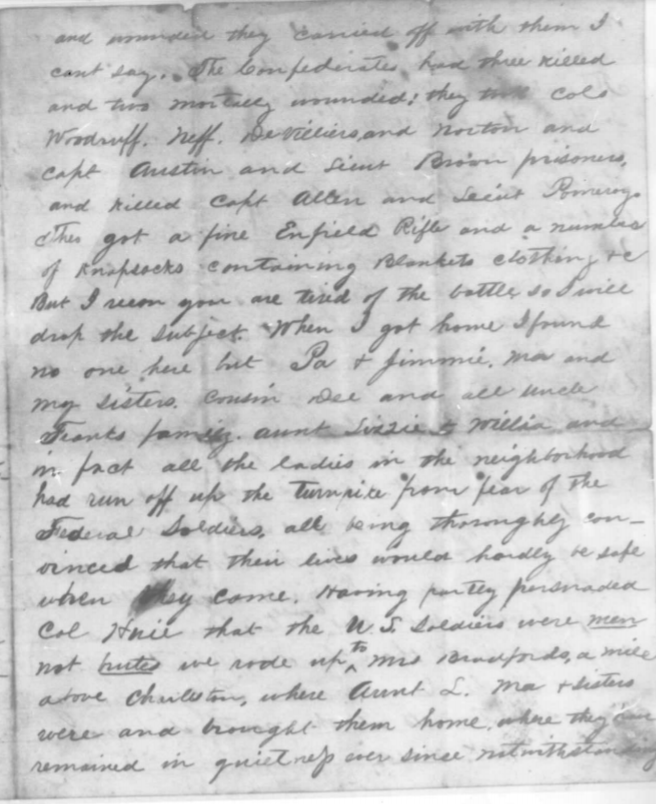 and wounded they carried off with them I
cant say. The Confederates had three killed
and two mortally wounded; they took Cols
Woodruff. Neff. DeVilliers, and Norton and
Capt Austin and Lieut Brown prisoners,
and killed Capt Allen and Lieut Pomeroy.
They got a fine Enfield Rifle and a number
of Knapsacks containing Blankets clothing &c
But I recon you are tired of the battle, so I will
drop the subject. When I got home I found
no one here but Pa & Jimmie. Ma and
my sisters. Cousin Dee and all Uncle
Franks family. aunt Lizzie & Willia and
in fact all the ladies in the neighborhood
had run off up the turnpike from fear of the
Federal Soldiers, all being thoroughly con-
vinced that their lives would hardly be safe
when they came. Having partly persuaded
Col Huie that the U.S. Soldiers were men
not brutes we rode up to Mrs Bradfords, a mile
above Charleston, where Aunt L. Ma & sisters
were and brought them home, where they have
remained in quietness ever since notwithstanding